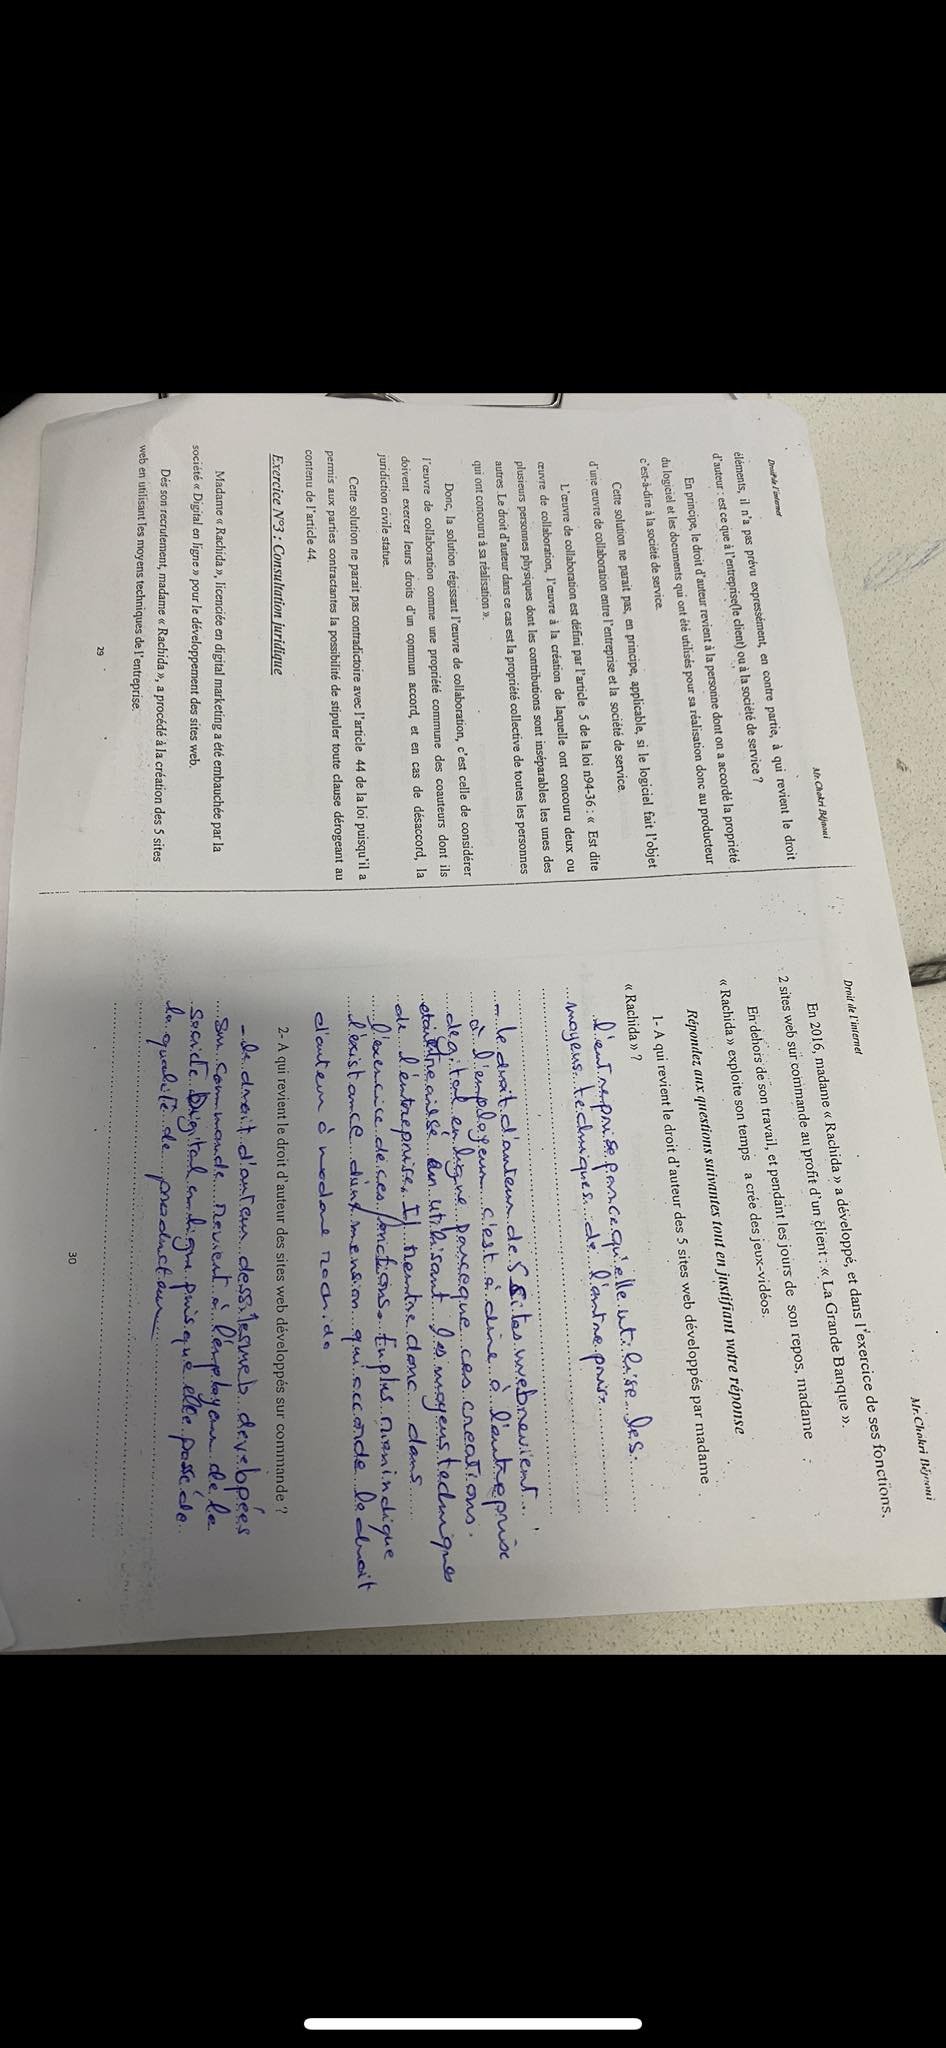 Droit de l'internet
Mr.Chokri Béjaoui
éléments, il n'a pas prévu expressément, en contre partie, à qui revient le droit
d'auteur : est ce que à l'entreprise(le client) ou à la société de service ?
En principe, le droit d'auteur revient à la personne dont on a accordé la propriété
du logiciel et les documents qui ont été utilisés pour sa réalisation donc au producteur
c'est-à-dire à la société de service.
Cette solution ne parait pas, en principe, applicable, si le logiciel fait l'objet
d'une œuvre de collaboration entre l'entreprise et la société de service.
L'œuvre de collaboration est défini par l'article 5 de la loi n94-36 : « Est dite
œuvre de collaboration, l'œuvre à la création de laquelle ont concouru deux ou
plusieurs personnes physiques dont les contributions sont inséparables les unes des
autres. Le droit d'auteur dans ce cas est la propriété collective de toutes les personnes
qui ont concouru à sa réalisation ».
Donc, la solution régissant l'œuvre de collaboration, c'est celle de considérer
l'œuvre de collaboration comme une propriété commune des coauteurs dont ils
doivent exercer leurs droits d'un commun accord, et en cas de désaccord, la
juridiction civile statue.
Cette solution ne parait pas contradictoire avec l'article 44 de la loi puisqu'il a
permis aux parties contractantes la possibilité de stipuler toute clause dérogeant au
contenu de l'article 44.
Exercice N°3 : Consultation juridique
Madame « Rachida », licenciée en digital marketing a été embauchée par la
société « Digital en ligne » pour le développement des sites web.
Dés son recrutement, madame « Rachida », a procédé à la création des 5 sites
web en utilisant les moyens techniques de l'entreprise.
29
Droit de l'internet
Mr.Chokri Béjaoui
En 2016, madame « Rachida » a développé, et dans l'exercice de ses fonctions,
2 sites web sur commande au profit d'un client : « La Grande Banque ».
En dehors de son travail, et pendant les jours de son repos, madame
« Rachida » exploite son temps a crée des jeux-vidéos.
Répondez aux questions suivantes tout en justifiant votre réponse
1- A qui revient le droit d'auteur des 5 sites web développés par madame
« Rachida » ?
l'entreprise parce qu'elle utilise les
moyens techniques de l'antreprise
- le droit d'auteur de 5 sites web revient
à l'employeur c'est à dire à l'entreprise
digital en ligne parceque ces creations
étaient realisé en utilisant les moyens techniques
de l'entreprise. Il rentre donc dans
l'exercice de ces fonctions. En plus rien indique
l'existance d'une mension qui accorde le droit
d'auteur à madame rachida
2- A qui revient le droit d'auteur des sites web développés sur commande ?
- le droit d'auteur des sites web developés
sur commande revient à l'employeur de la
Societé Digital en ligne puisque elle possède
la qualité de producteur
30